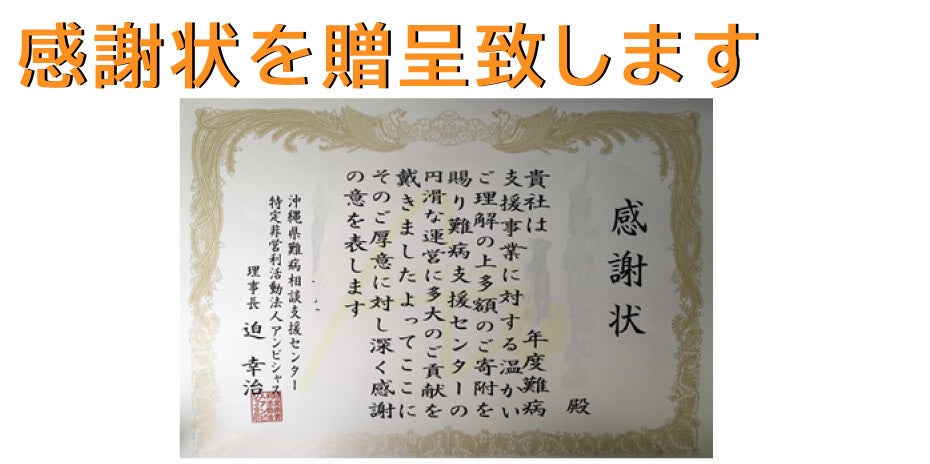 感謝状を贈呈致します
感謝状
殿
貴社は 年度難病
支援事業に対する温かい
ご理解の上多額のご寄附を
賜り難病支援センターの
円滑な運営に多大のご貢献を
戴きましたよってここに
そのご厚意に対し深く感謝
の意を表します
沖縄県難病相談支援センター
特定非営利活動法人アンビシャス
理事長 迫 幸治